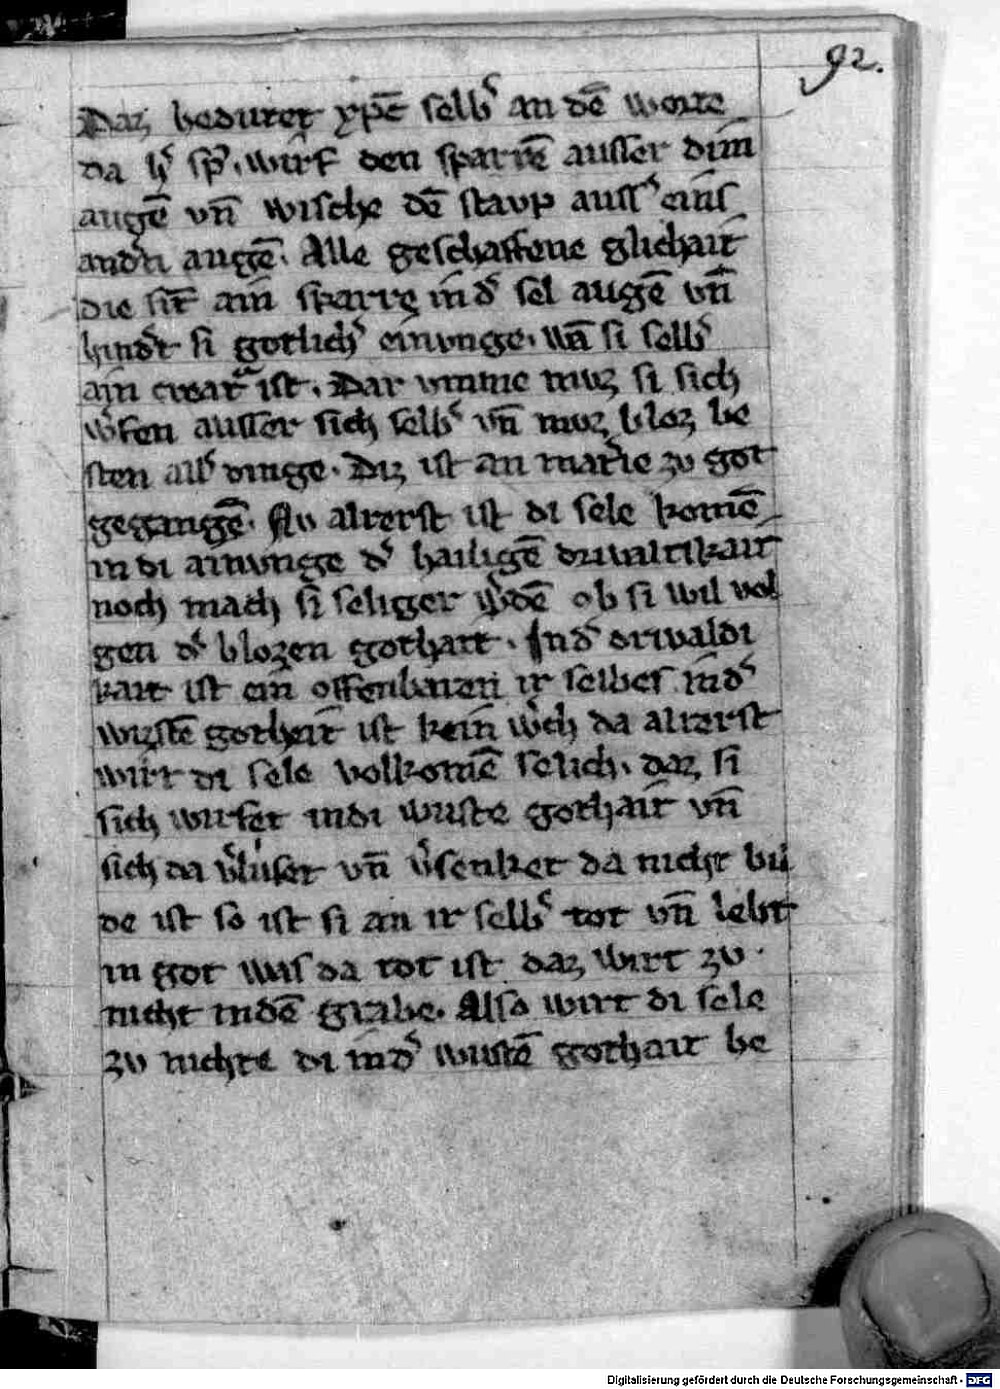 92.
Daz beduꝛtet xp̄c selbꝰ an dē woꝛte
da hꝰ sp̄. wirf den sparrē ausser dim̄
augē vn̄ wische dē stavp aussꝰ eins
andn augē. Alle geschaffene glichait
die sit̄ ain sparre in dꝰ sel augē vn̄
hindt si gotlichꝰ einvnge. wan̄ si selbꝰ
ain creatᵃ ist. Dar vmme mvz si sich
wꝰfen ausser sich selbꝰ vn̄ mvz bloz be
sten allꝰ dinge. Diz ist an marie zv got
gegangē. Nv alrerst ist di sele komē
in di ainvnge dꝰ hailigē drivaltikait
noch mach si seliger wꝰdē ob si wil vol
gen dꝰ blozen gothait. In dꝰ drivaldi
kait ist ein offenbaren ir selbes in dꝰ
wustē gothait ist kein wꝰch da alrerst
wirt di sele volkomē selich. daz si
sich wirfet in di wuste gothait vn̄
sich da vꝰliuset vn̄ vꝰsenket da nicht bil
de ist so ist si an ir selbꝰ tot vn̄ lebt
in got was da tot ist daz wirt zv
nicht in dē grabe. Also wirt di sele
zv nichte di in dꝰ wustē gothait be
Digitalisierung gefördert durch die Deutsche Forschungsgemeinschaft - DFG